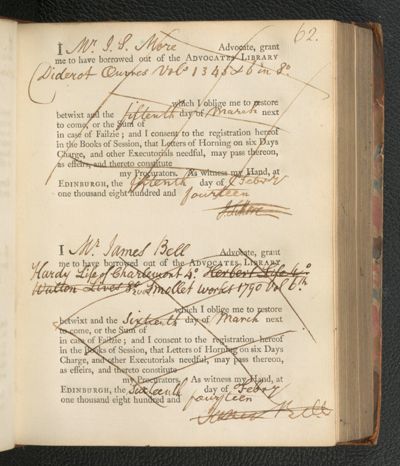 62.
I Mr. J. S. More Advocate, grant
me to have borrowed out of the ADVOCATES LIBRARY
Diderot Œuvres Vols 1 3 4 5 & 6 in 8o.
which I oblige me to restore
betwixt and the fifteenth day of March next
to come, or the Sum of
in case of Failzie; and I consent to the registration hereof
in the Books of Session, that Letters of Horning on six Days
Charge, and other Executorials needful, may pass thereon,
as effeirs, and thereto constitute
my Procurators. As witness my Hand, at
EDINBURGH, the fifteenth day of Febry
one thousand eight hundred and fourteen
I Mr. James Bell Advocate, grant
me to have borrowed out of the ADVOCATES LIBRARY
Hardy Life of Charlemont 4o. Herbert Life 4o
Walton Lives 8o Smollet works 1790 Vol 6th
which I oblige me to restore
betwixt and the Sixteenth day of March next
to come, or the Sum of
in case of Failzie; and I consent to the registration hereof
in the Books of Session, that Letters of Horning on six Days
Charge, and other Executorials needful, may pass thereon,
as effeirs, and thereto constitute
my Procurators. As witness my Hand, at
EDINBURGH, the Sixteenth day of Febry
one thousand eight hundred and fourteen
James Bell